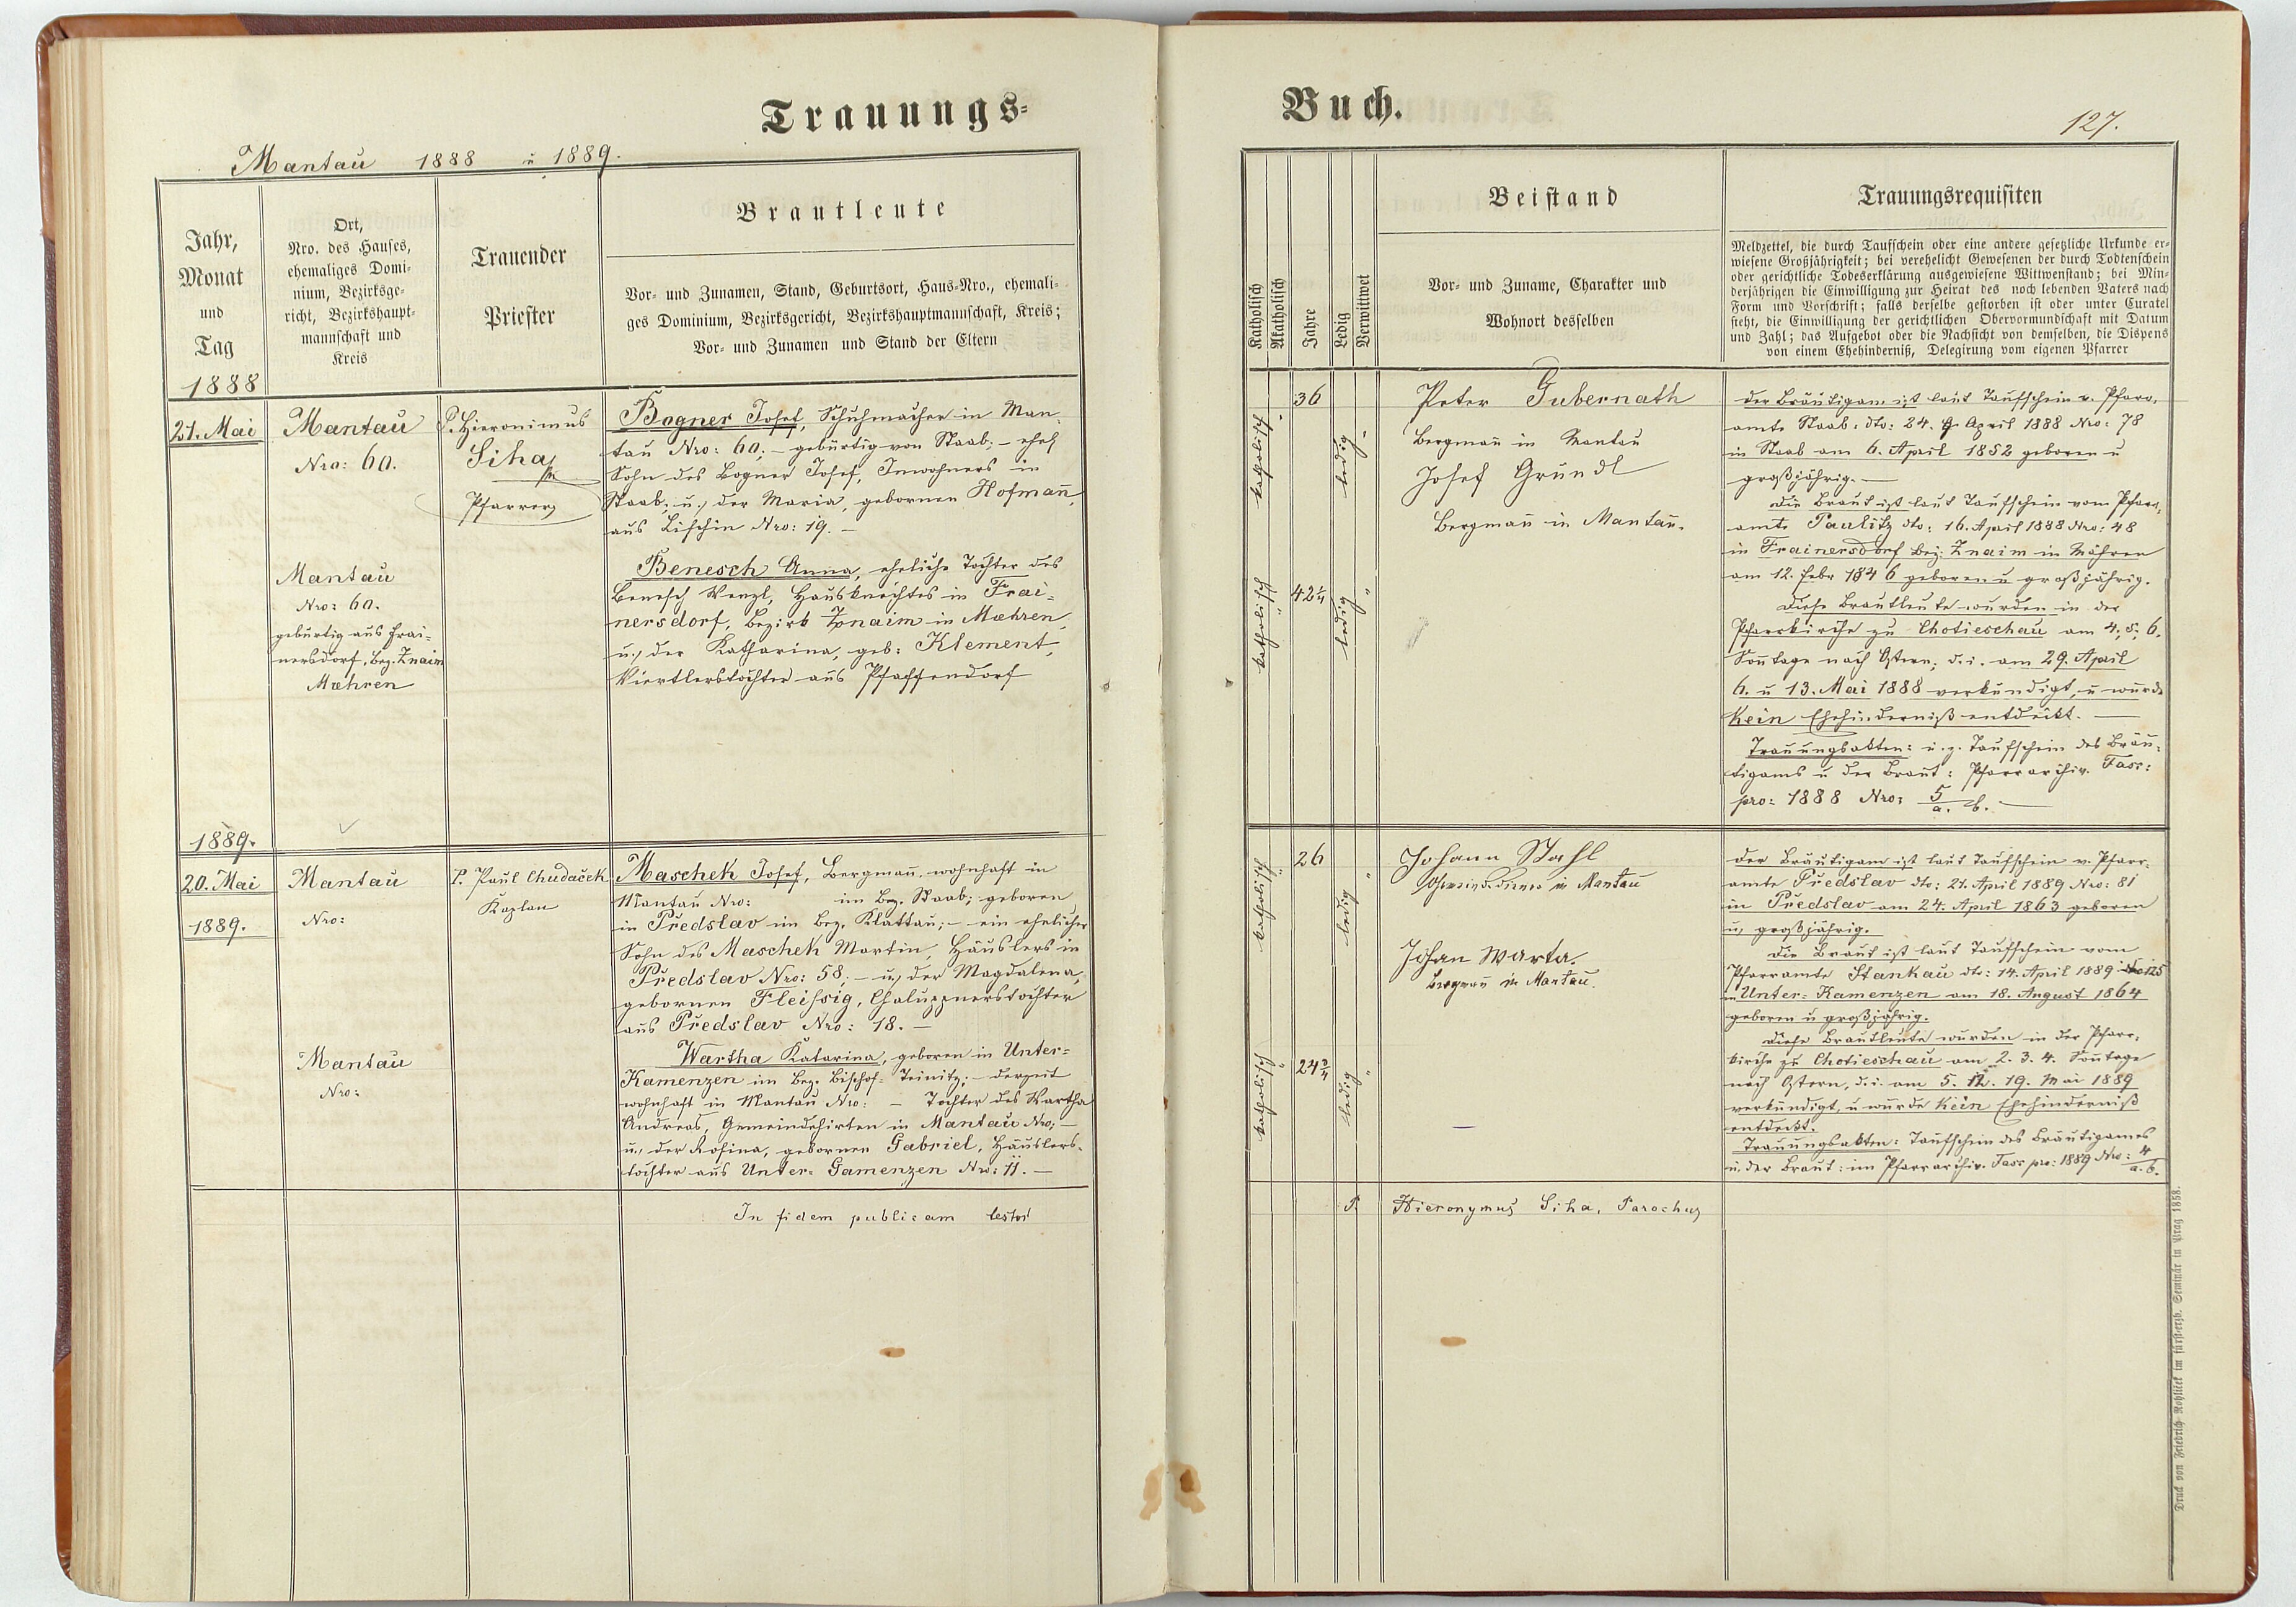 Trauungs-
Mantau 1888 u 1889.
Jahr,
Monat
und
Tag
Ort,
Nro. des Hauses,
ehemaliges Domi-
nium, Bezirksge-
richt, Bezirkshaupt-
mannschaft und
Kreis
Trauender
Priester
Brautleute
Vor- und Zunamen, Stand, Geburtsort, Haus-Nro., ehemali-
ges Dominium, Bezirksgericht, Bezirkshauptmannschaft, Kreis;
Vor- und Zunamen und Stand der Eltern
1888
21. Mai
Mantau
Nro: 60.
P. Hieronimus
Siha
Pfarrer
Bogner Josef, Schuhmacher in Man-
tau Nro: 60; – gebürtig von Staab; – ehel
Sohn des Bogner Josef, Inwohners in
Staab; u. der Maria, gebornen Hofmañ,
aus Lischin Nro: 19. –
Mantau
Nro: 60.
gebürtig aus Frai-
nersdorf, Bez. Znaim
Mæhren
Benesch Anna, eheliche Tochter des
Benesch Wenzl, Hausknechtes in Frai-
nersdorf, Bezirk Znaim in Mæhren,
u. der Katharina, geb: Klement,
Viertlerstochter aus Pfaffendorf
1889.
20. Mai
1889.
Mantau
Nro:
P. Paul Chudaček
Kaplan
Maschek Josef, Bergmañ, wohnhaft in
Mantau Nro: im Bez. Staab; geboren
in Předslav im Bez. Klattau; – ein ehelicher
Sohn des Maschek Martin, Häuslers in
Předslav Nro: 58; – u. der Magdalena,
gebornen Fleißig, Chaluppnerstochter
aus Předslav Nro: 18. –
Mantau
Nro:
Wartha Katarina, geboren in Unter-
Kamenzen im Bez. Bischof-Teinitz; – derzeit
wohnhaft in Mantau Nro: – Tochter des Wartha
Andreas, Gemeindehirten in Mantau Nro; –
u. der Rosina, gebornen Gabriel, Häuslers-
tochter aus Unter-Gamenzen Nro: 11. –
In fidem publicam testor
Buch.
127.
Katholisch
Akatholisch
Jahre
Ledig
Verwittwet
Beistand
Vor- und Zuname, Charakter und
Wohnort desselben
Trauungsrequisiten
Meldzettel, die durch Taufschein oder eine andere gesetzliche Urkunde er-
wiesene Großjährigkeit; bei verehelicht Gewesenen der durch Todtenschein
oder gerichtliche Todeserklärung ausgewiesene Wittwenstand; bei Min-
derjährigen die Einwilligung zur Heirat des noch lebenden Vaters nach
Form und Vorschrift; falls derselbe gestorben ist oder unter Curatel
steht, die Einwilligung der gerichtlichen Obervormundschaft mit Datum
und Zahl; das Aufgebot oder die Nachsicht von demselben, die Dispens
von einem Ehehinderniß, Delegirung vom eigenen Pfarrer
katholisch
36
ledig
Peter Gubernath
Bergmañ in Mantau
Josef Gründl
Bergmañ in Mantau.
der Bräutigam ist laut Taufschein v. Pfarr-
amte Staab: dto: 24. April 1888 Nro: 78
in Staab am 6. April 1852 geboren u
großjährig. –
die Braut ist laut Taufschein vom Pfarr-
amte Paulitz dto: 16. April 1888 Nro: 48
in Frainersdorf Bez: Znaim in Mähren
am 12. Febr 1846 geboren u großjährig.
Diese Brautleute wurden in der
Pfarrkirche zu Chotieschau am 4. 5. 6.
Soñtage nach Ostern, d. i. am 29. April
6. u 13. Mai 1888 verkündigt, u wurde
kein Ehehinderniß entdeckt. –
Trauungsakten: u. z. Taufschein des Bräu-
tigams u der Braut: Pfarrarchiv. Fasc:
pro: 1888 Nro: 5/a. b. –
katholisch
42 1/4
ledig
katholisch
26
ledig
Johann Stahl
Gemeindediener in Mantau
Johan Warta.
Bergmañ in Mantau.
der Bräutigam ist laut Taufschein v. Pfarr-
amte Předslav dto: 21. April 1889 Nro: 81
in Předslav am 24. April 1863 geboren
u. großjährig.
die Braut ist laut Taufschein vom
Pfarramte Stankau dto: 14. April 1889 Nro 125
in Unter-Kamenzen am 18. August 1864
geboren u großjährig.
Diese Brautleute wurden in der Pfarr-
kirche zu Chotieschau am 2. 3. 4. Soñtage
nach Ostern, d. i. am 5. 12. 19. Mai 1889
verkündigt, u wurde kein Ehehinderniß
entdeckt.
Trauungsakten: Taufschein des Bräutigames
u. der Braut: im Pfarrarchiv. Fasc pro: 1889 Nro: 4/a. b.
katholisch
24 3/4
ledig
P. Hieronymus Siha, Parochus
Druck von Friedrich Rohliček im fürst-erzb. Seminär in Prag 1858.